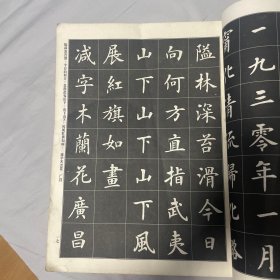 一九三零年一月
甯化清流歸化路
隘林深苔滑今日
向何方直指武夷
山下山下風
展紅旗如畫
減字木蘭花廣昌
七